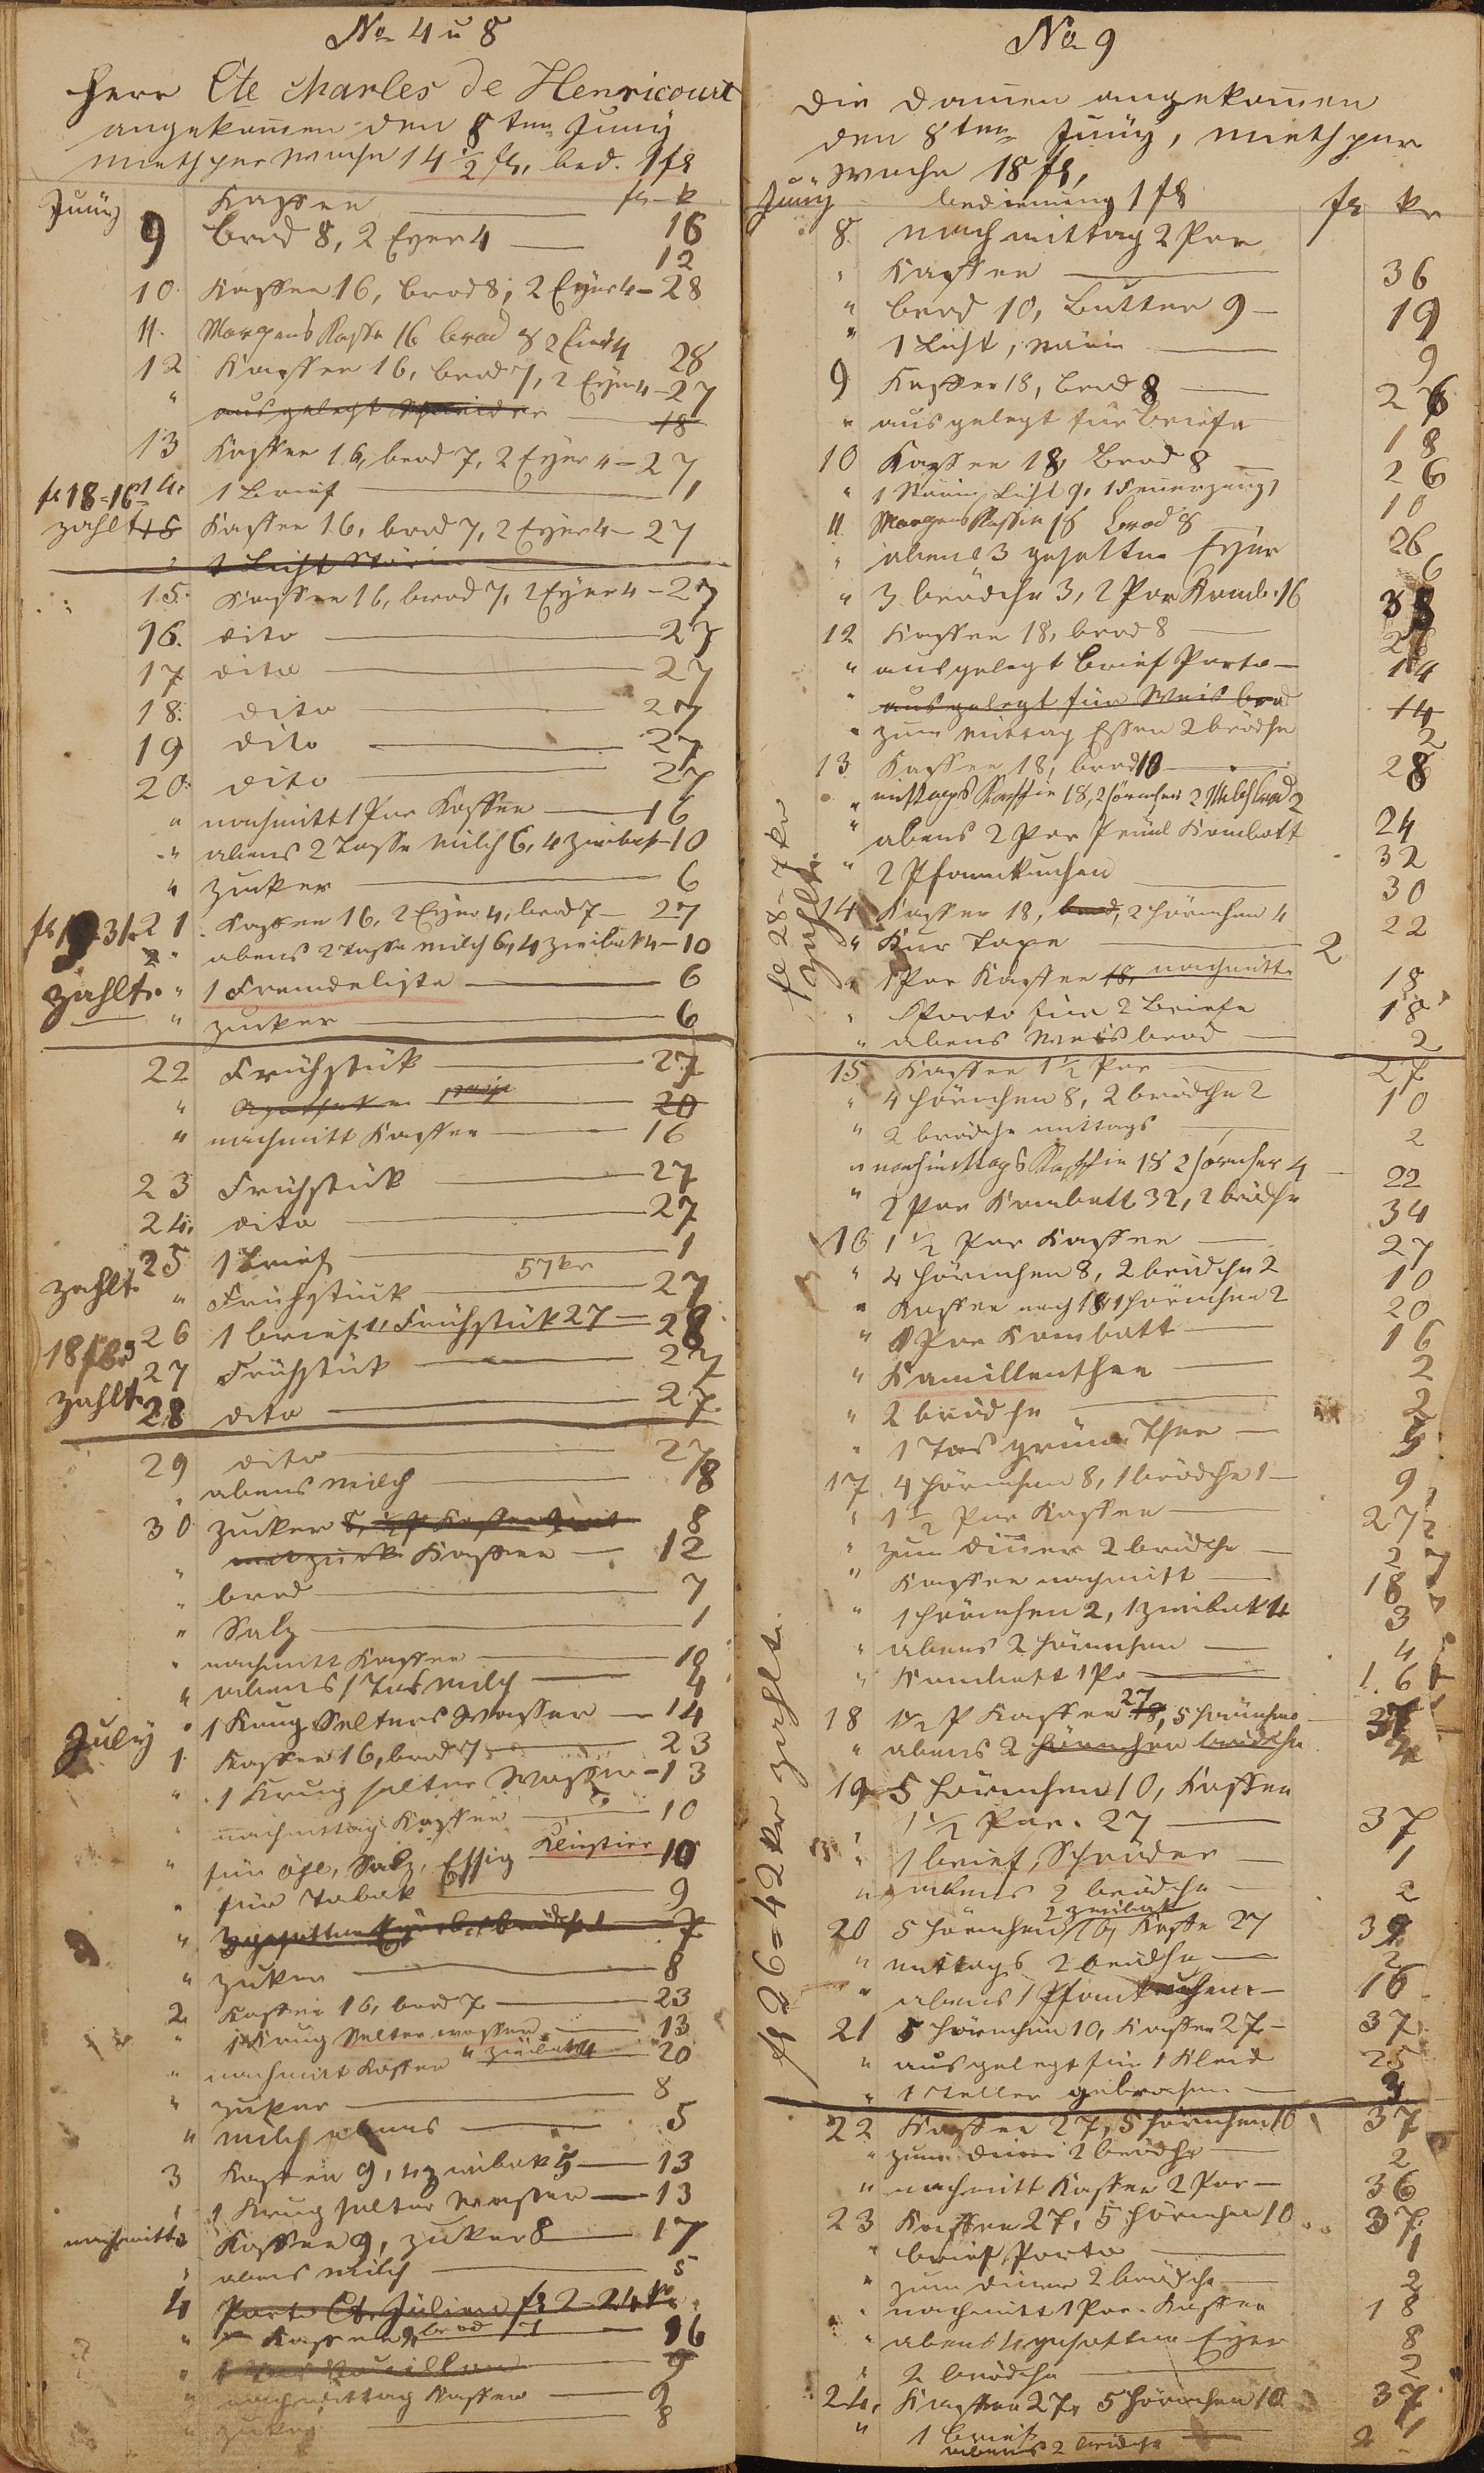 No 4 u 8
Herr Cte Charles de Henricourt
angekomen den 8ten Juny
Mieth per Woche 14 ½ fl, bed. 1 fl
Juny Kaffee — fl – k
9 brod 8, 2 Eyer 4 — 16
12
10 Kaffee 16, brod 8, 2 Eyer 4 – 28
11. Morgens Kaffe 16 brod 8 2 Eier 4 28
12 Kaffee 16, brod 7, 2 Eyer 4 – 27
" ausgelegt Schneider — 18
13 Kaffee 16, brod 7, 2 Eyer 4 – 27
14. 1 Brief — 1
fl 18 = 16
zahlt 15 Kaffee 16, brod 7, 2 Eyer 4 – 27
" 1 Licht Stärin
15. Kaffee 16, brod 7, 2 Eyer 4 – 27
16. dito — 27
17 dito — 27
18. dito — 27
19 dito — 27
20. dito — 27
" nachmitt 1 Por Kaffee — 16
" abens 2 Tasse Milch 6, 4 zwibak – 10
" Zucker — 6
21. Kaffee 16, 2 Eyer 4, brod 7 – 27
" abens 2 Tasse Milch 6, 4 zwibak 4 – 10
zahlt. " 1 Fremdeliste — 6
" zucker — 6
22 Frühstük — 27
" — 20
" nachmitt Kaffee — 16
23 Frühstük — 27
24. dito — 27
25 1 Brief — 1
57 kr
zahlt. " Frühstück — 27
26 1 brief 1, Frühstük 27 — 28
27 Frühstük — 27
zahlt. 28 dito — 27
29 dito — 27
" abens Milch — 18
30 zucker 8
Kaffee — 12
" brod — 7
" Salz — 1
" nachmitt Kaffee — 10
" abens 1 Tas Milch — 4
" 1 Krug Selters Wasser — 14
July 1. Kaffee 16, brod 7 — 23
" 1 Krug selter Wasser – 13
" nachmittag Kaffee — 10
" für öhl, Salz, Essig Klistier 10
" für Tabak — 9
" 7
" zuker — 8
2 Kaffee 16, brod 7 — 23
" 1 Krug Selter wasser — 13
" nachmitt Kaffee " zwibak 4 — 20
" zuker — 8
" Milch abens — 5
3 Kaffee 9, 4 zwibak — 13
" 1 Krug selter Wasser — 13
nachmitt. Kaffee 9, zuker 8 — 17
" abens Milch — 5
4 Porto Ct. Jülien fl 2 – 24 kr
" Kaffee 9, brod 7 — 16
" 1 Tas Bouillon — 9
" nachmittag Kaffee — 9
" zuker — 8
No 9
Die Damen angekomen
den 8ten Juny, Mieth per
Woche 18 fl,
Juny bedienung 1 fl fl kr
8. nachmittag 2 Por
" Kaffee — 36
" brod 10, Butter 9 — 19
" 1 Licht, Stärin — 9
9 Kaffee 18, brod 8 — 26
" ausgelegt für Briefe 18
10 Kaffee 18, Brod 8 — 26
" 1 Stärin Licht 9, 1 Feuerzeug 1 10
11. Morgens Kaffee 18 brod 8 26
" abens 3 gesottne Eyer 6
" 3 brödche 3, 2 Por Komb. 16 38
12 Kaffee 18, brod 8 — 26
" ausgelegt Brief Porto — 14
" ausgelegt für Weis brod 14
" zum Mittag Essen 2 brödche 2
13 Kaffee 18, brod 10 — 28
" mittags Kaffee 18, 2 Hörncher 2 Milchbrod 2 24
" abens 2 Por Kombott 32
" 2 Pfannkuchen — 30
14 Kaffee 18, brod, 2 Hörnchen 4 22
" Kur Taxe — 2
fl 28 – 7 kr zahlt.
" 1 Por Kaffee 18, nachmitt. 18
" Porto für 2 Briefe 18
" abens Weisbrod — 2
15 Kaffee 1 ½ Por — 27
" 4 Hörnchen 8, 2 brödche 2 10
" 2 brödche mittags — 2
" nachmittags Kaffee 18 2 Hörncher 4 22
" 2 Por Kombott 32, 2 brödche 34
16 1 ½ Por Kaffee — 27
" 4 Hörnchen 8, 2 brödche 2 10
" Kaffee nach 18, 1 Hörnchen 2 20
" 1 Por Kombott — 16
" Kamillenthee — 2
" 2 brödche — 2
" 1 Tas grün Thee — 5
17 4 Hörnchen 8, 1 brödche 1 — 9
" 1 ½ Por Kaffee — 27
" zum Diner 2 brödche — 2
" Kaffee nachmitt — 18
" 1 Hörnchen 2, 1 zwibak 3
" abens 2 Hörnchen — 4
" Kombott 1 Po — 16
18 1 ½ P Kaffee 27 18, 5 Hörnchen 37
" abens 2 Hörnchen brödche 2
19 5 Hörnchen 10, Kaffee
1 ½ Por. 27 — 37
" 1 brief, Schröder — 1
" abens 2 brödche — 2
20 5 Hörnchen 10, 2 zwibak Kaffe 27 39
" mittags 2 brödche — 2
" abens 1 Pfannkuchen — 16
21 5 Hörnchen 10, Kaffee 27 – 37
" ausgelegt für 1 Kleid 25
" 1 Teller gebrochen —
fl 26 = 42 kr zahlt.
22 Kaffee 27, 5 Hörnchen 10 37
" zum Diner 2 brödche — 2
" nachmitt Kaffee 2 Por — 36
23 Kaffee 27, 5 Hörnchen 10 37
" brief Porto — 1
" zum Diner 2 brödche — 2
" nachmitt 1 Por. Kaffee 18
" abens 4 gesottne Eyer 8
" 2 brödche — 2
24. Kaffee 27, 5 Hörnchen 10 37
" 1 brief — 1
abens 2 brödche — 2